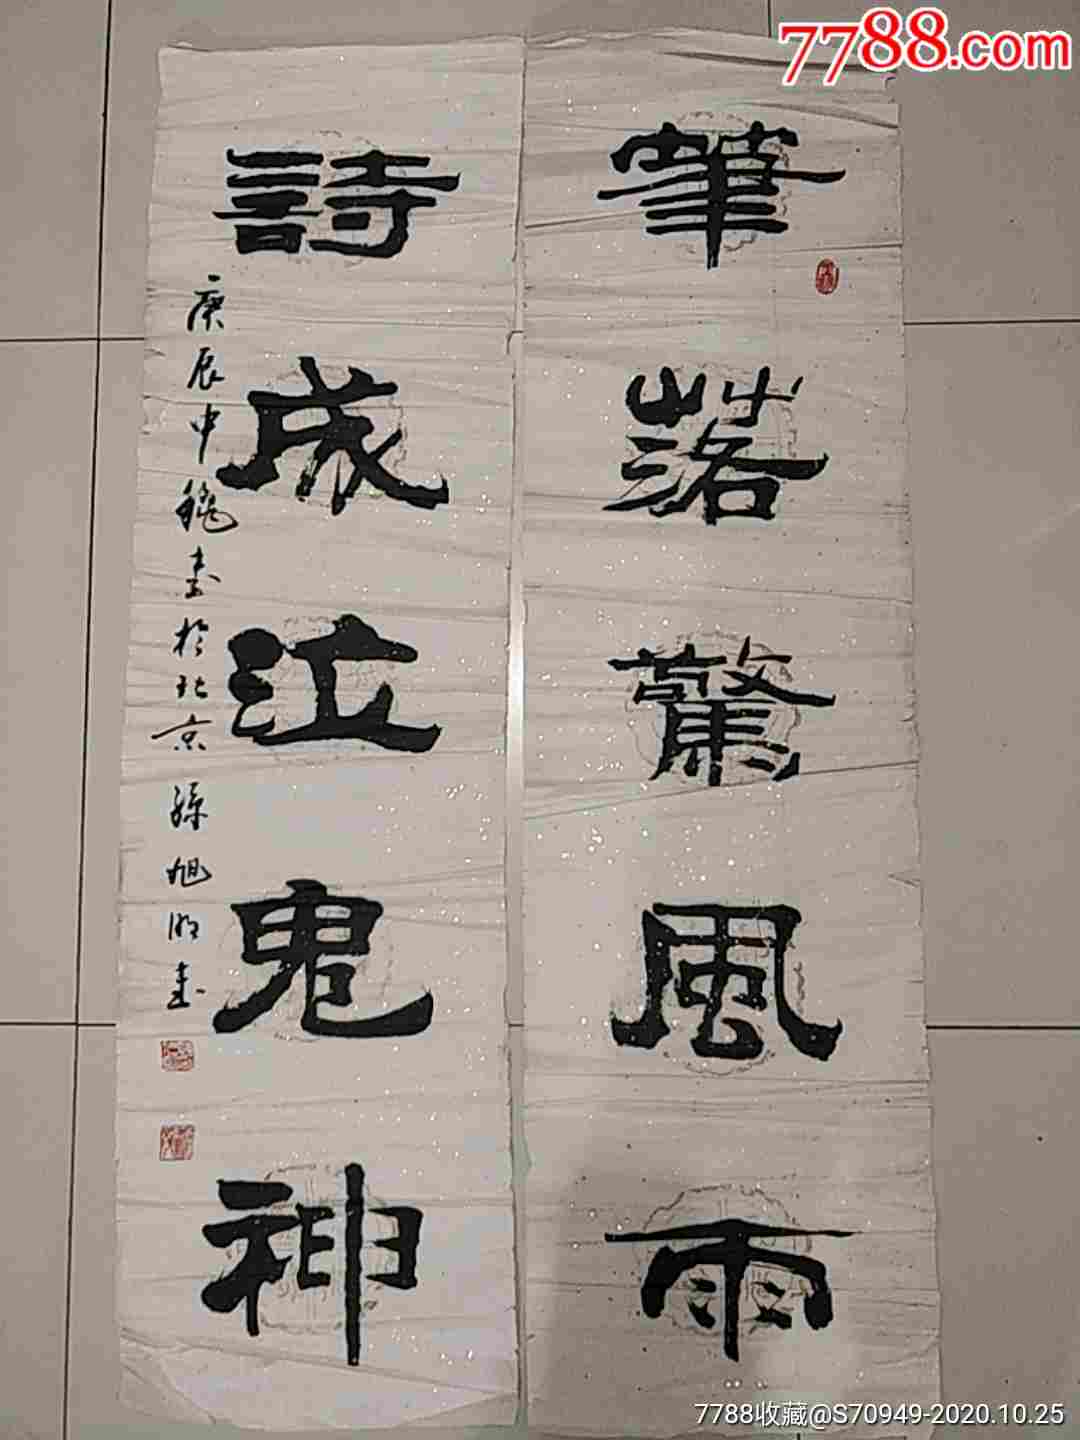 7788.com
筆落驚風雨
詩成泣鬼神
庚辰中秋書於北京孫旭明書
7788收藏@S70949-2020.10.25